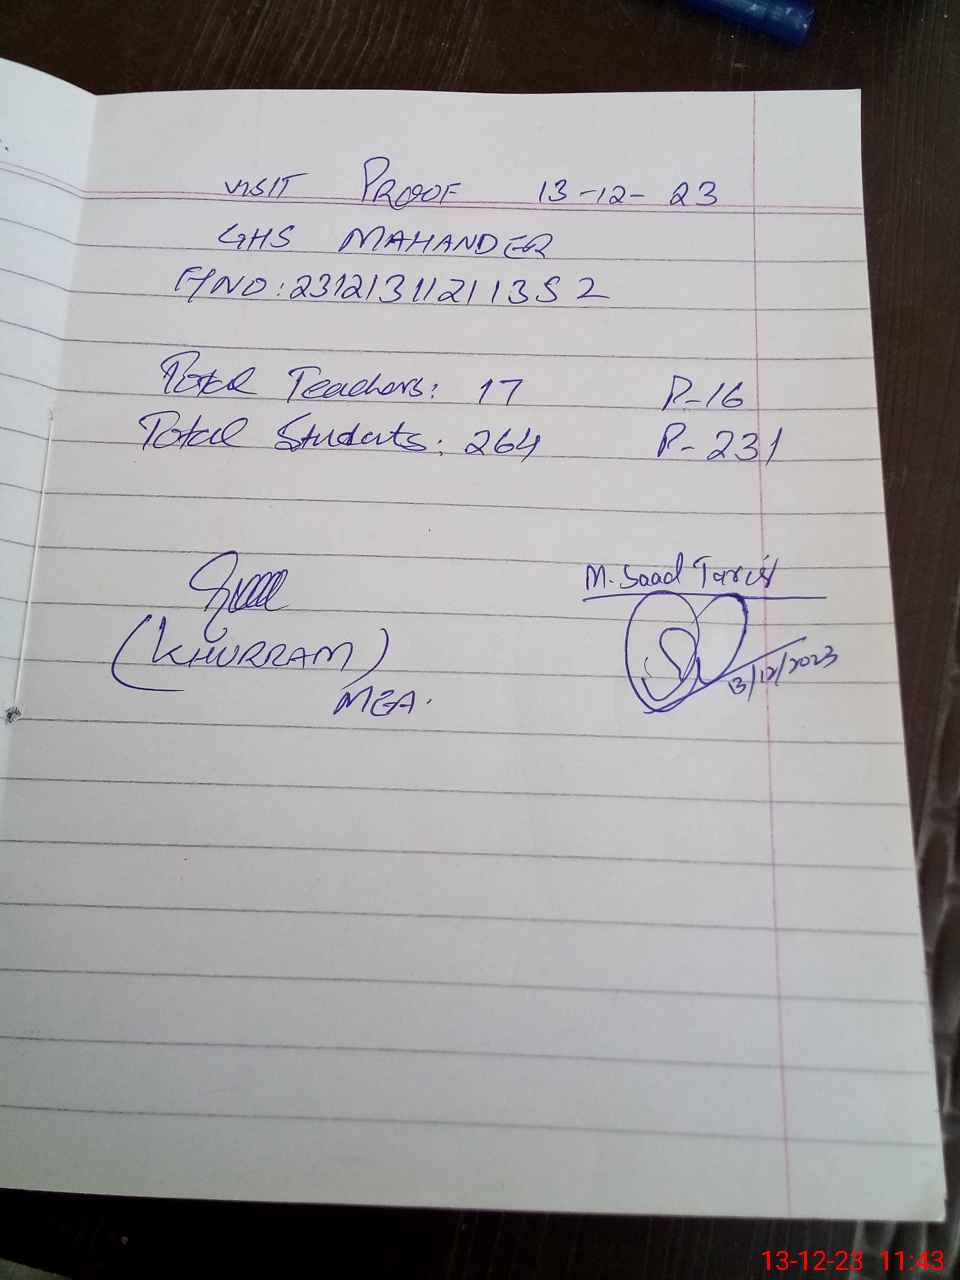 VISIT PROOF 13-12-23
GHS MAHANDER
F/NO: 231213112113S2
Total Teachers: 17 P-16
Total Students: 264 P-231
M. Saad Tariq
(KHURRAM)
13/12/2023
MEA.
13-12-23 11:43